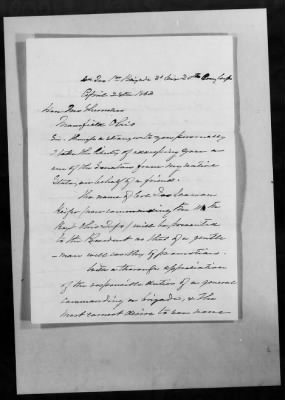 Qrs 1st Brigade 2d Div 20th Army Corps
April 28th 1863
Hon Jno Sherman
Mansfield Ohio
Sir, though a stranger to you personally
I take the liberty of you as
one of the Senators from my native
State, on behalf of a friend.
The name of Col
commanding the
Regt Ohio Inf'y) will be presented
to the President as that of a gentle-
man well worthy of promotion.
With a thorough appreciation
of the responsible duties of a general
commanding a brigade, & the
most earnest desire to see none